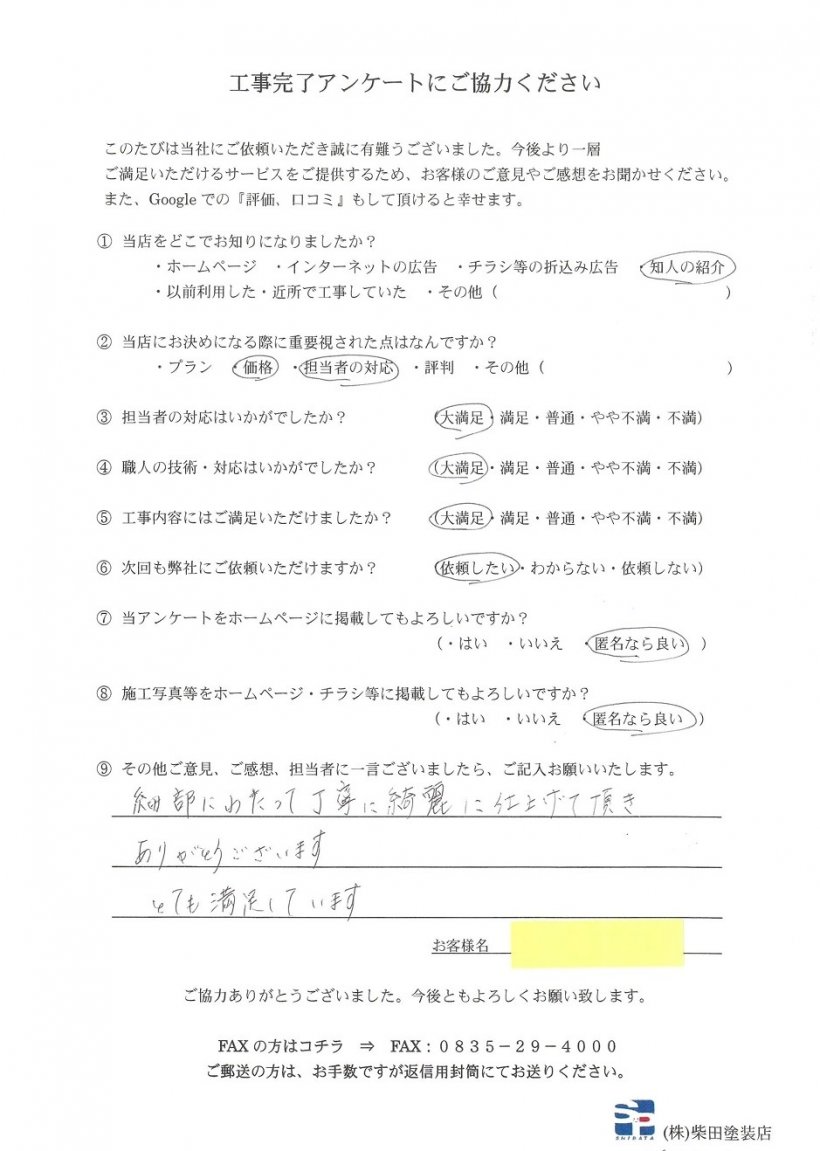 工事完了アンケートにご協力ください
このたびは当社にご依頼いただき誠に有難うございました。今後より一層
ご満足いただけるサービスをご提供するため、お客様のご意見やご感想をお聞かせください。
また、Googleでの『評価、口コミ』もして頂けると幸せます。
① 当店をどこでお知りになりましたか？
・ホームページ ・インターネットの広告 ・チラシ等の折込み広告 ・知人の紹介
・以前利用した・近所で工事していた ・その他（ ）
② 当店にお決めになる際に重要視された点はなんですか？
・プラン ・価格 ・担当者の対応 ・評判 ・その他（ ）
③ 担当者の対応はいかがでしたか？ （大満足・満足・普通・やや不満・不満）
④ 職人の技術・対応はいかがでしたか？ （大満足・満足・普通・やや不満・不満）
⑤ 工事内容にはご満足いただけましたか？ （大満足・満足・普通・やや不満・不満）
⑥ 次回も弊社にご依頼いただけますか？ （依頼したい・わからない・依頼しない）
⑦ 当アンケートをホームページに掲載してもよろしいですか？
（・はい ・いいえ ・匿名なら良い ）
⑧ 施工写真等をホームページ・チラシ等に掲載してもよろしいですか？
（・はい ・いいえ ・匿名なら良い ）
⑨ その他ご意見、ご感想、担当者に一言ございましたら、ご記入お願いいたします。
細部にわたって丁寧に綺麗に仕上げて頂き
ありがとうございます
とても満足しています
お客様名
ご協力ありがとうございました。今後ともよろしくお願い致します。
FAXの方はコチラ ⇒ FAX：０８３５－２９－４０００
ご郵送の方は、お手数ですが返信用封筒にてお送りください。
SHIBATA
(株)柴田塗装店